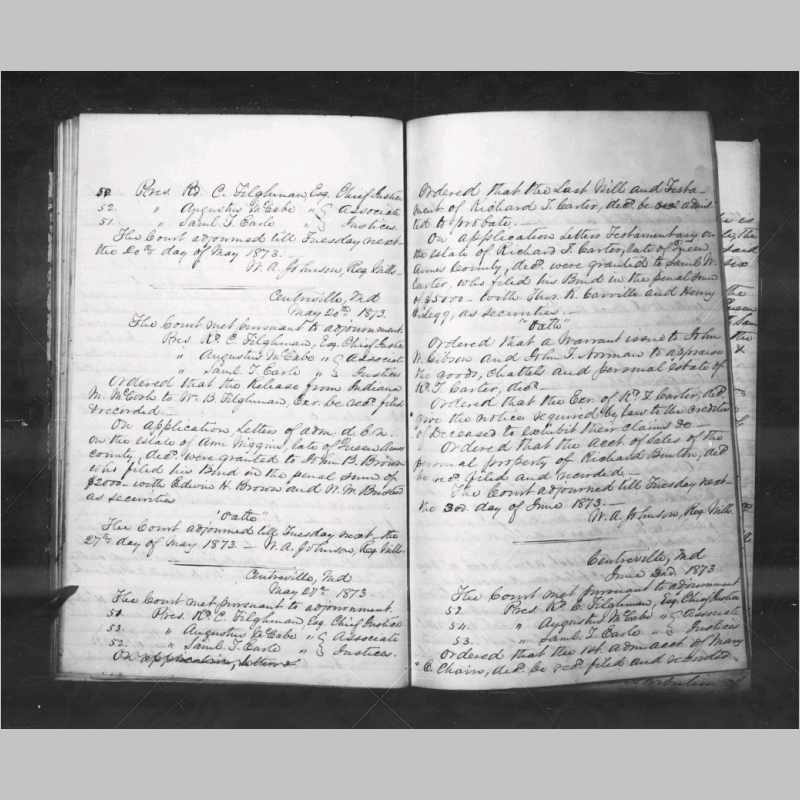 50. Pres. Rd. C. Tilghman, Esq. Chief Justice
52. " Augustus McCabe " } Associate
51. " Saml. T. Earle " } Justices.
The Court adjourned till Tuesday next
the 20th day of May 1873.
W. A. Johnson, Reg. Wills.
Centreville, Md
May 20th 1873.
The Court met pursuant to adjournment
Pres. Rd. C. Tilghman, Esq. Chief Justice
" Augustus McCabe " } Associate
" Saml. T. Earle " } Justices
Ordered that the Release from Indiana
M. to Wm. B. Tilghman, Exr. be recd. filed
& recorded —
On application Letters of adm. d. b. n.
on the estate of Ann Wiggins, late of Queen Anns
county, decd. were granted to John B. Brown
who filed his Bond in the penal sum of
$2000 with Edwin H. Brown and W. M.
as securities
"Oaths"
The Court adjourned till Tuesday next, the
27th day of May 1873. — W. A. Johnson, Reg. Wills.
Centreville, Md
May 27th 1873
The Court met pursuant to adjournment.
51. Pres. Rd. C. Tilghman, Esq. Chief Justice
53. " Augustus McCabe " } Associate
52. " Saml. T. Earle " } Justices.
On application, letters
Ordered that the Last Will and Testa-
ment of Richard T. Carter, decd. be admit-
ted to probate. —
On application Letters Testamentary on
the estate of Richard T. Carter, late of Queen
Anns County, decd. were granted to Saml. W.
Carter, who filed his Bond in the penal sum
of $5000 — with Thos. R. Carville and Henry
Clegg, as securities. —
"Oaths"
Ordered that a Warrant issue to John
W. Gibson and John T. Norman to appraise
the goods, chattels and personal estate of
Rd. T. Carter, decd. —
Ordered that the Exr. of Rd. T. Carter, decd.
give the notice required by law to the creditors
of Deceased to exhibit their claims &c —
Ordered that the acct. of Sales of the
personal property of Richard Benton, decd
be recd. filed and recorded —
The Court adjourned till Tuesday next
the 3rd day of June 1873. —
W. A. Johnson, Reg. Wills.
Centreville, Md
June 3rd 1873
The Court met pursuant to adjournment
52. Pres. Rd. C. Tilghman, Esq. Chief Justice
54. " Augustus McCabe " } Associate
53. " Saml. T. Earle " } Justices
Ordered that the 1st. adm acct of Mary
E. Chairs, decd. be recd. filed and recorded